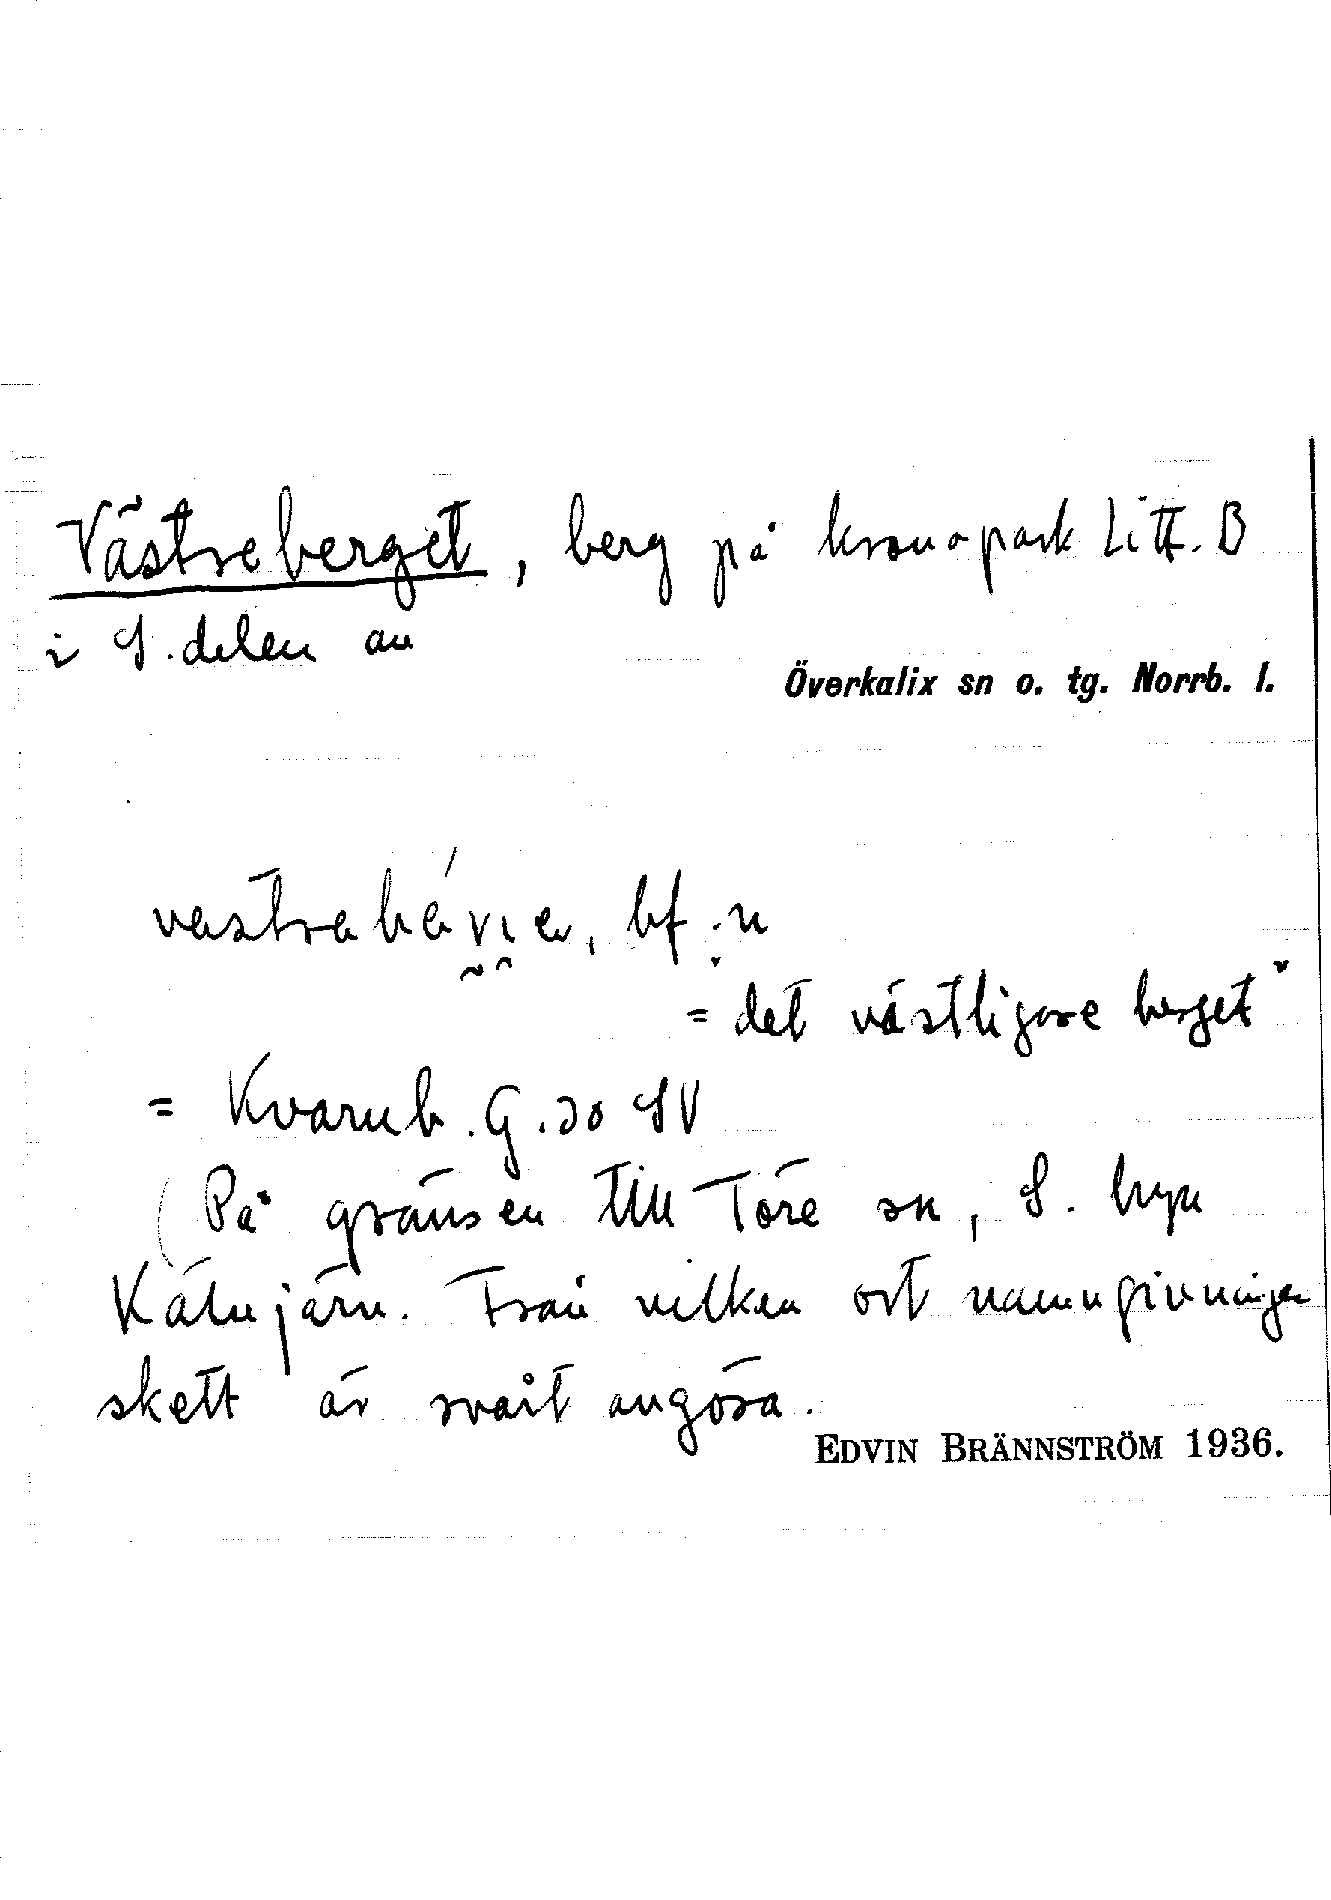 Västreberget, berg på kronopark Litt. B
i S. delen av
Överkalix sn o. tg. Norrb. l.
bf. n
= "det västligare berget"
= Kvarnb. G. 30 SV
(På gränsen till Töre sn, S. byn
Kälvjärv. Från vilken ort namngivningen
skett är svårt avgöra.
EDVIN BRÄNNSTRÖM 1936.